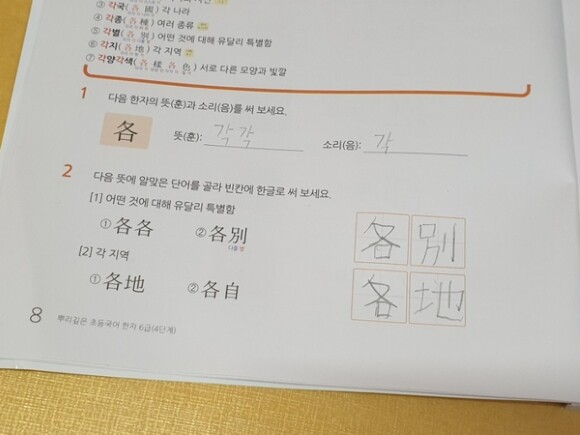 ③ 각국(各國) 각 나라
④ 각종(各種) 여러 종류
⑤ 각별(各別) 어떤 것에 대해 유달리 특별함
⑥ 각지(各地) 각 지역
⑦ 각양각색(各樣各色) 서로 다른 모양과 빛깔
1 다음 한자의 뜻(훈)과 소리(음)를 써 보세요.
各 뜻(훈): 각각 소리(음): 각
2 다음 뜻에 알맞은 단어를 골라 빈칸에 한글로 써 보세요.
[1] 어떤 것에 대해 유달리 특별함
① 各各 ② 各別 各別
다를 별
[2] 각 지역
① 各地 ② 各自 各地
8 뿌리깊은 초등국어 한자 6급(4단계)